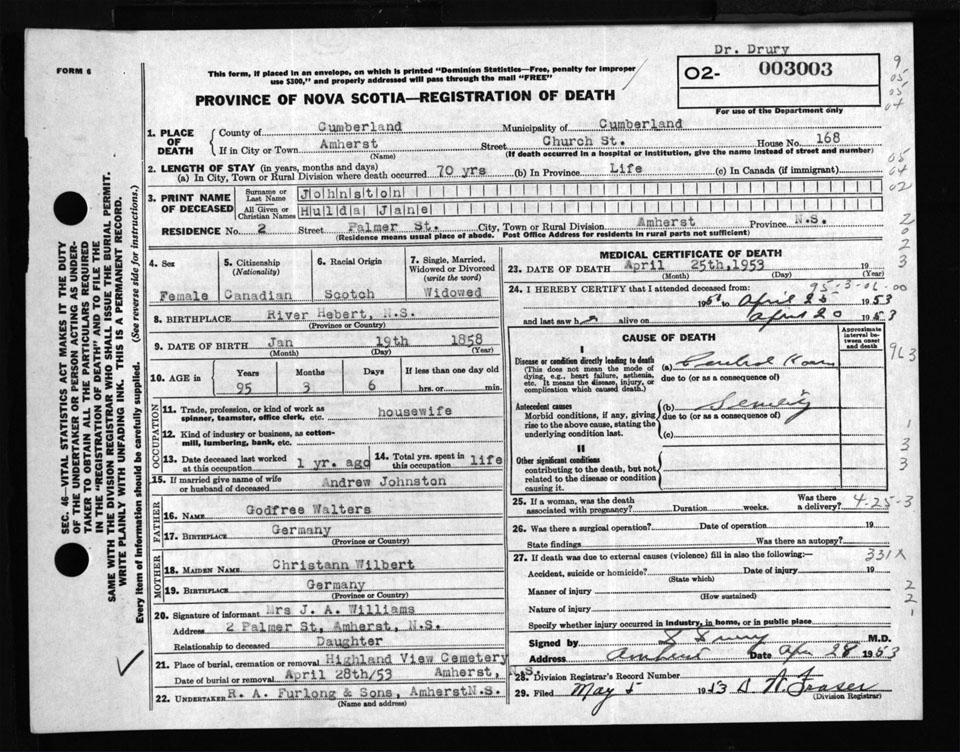 Dr. Drury
FORM 6
This form, if placed in an envelope, on which is printed "Dominion Statistics—Free, penalty for improper
use $300," and properly addressed will pass through the mail "FREE"
O2- 003003
For use of the Department only
PROVINCE OF NOVA SCOTIA—REGISTRATION OF DEATH
1. PLACE OF DEATH
County of Cumberland Municipality of Cumberland
If in City or Town Amherst Street Church St. House No. 168
(Name) (If death occurred in a hospital or institution, give the name instead of street and number)
2. LENGTH OF STAY (in years, months and days)
(a) In City, Town or Rural Division where death occurred 70 yrs (b) In Province Life (c) In Canada (if immigrant)
3. PRINT NAME OF DECEASED
Surname or Last Name Johnston
All Given or Christian Names Hulda Jane
RESIDENCE No. 2 Street Palmer St. City, Town or Rural Division Amherst Province N.S.
(Residence means usual place of abode. Post Office Address for residents in rural parts not sufficient)
4. Sex
Female
5. Citizenship (Nationality)
Canadian
6. Racial Origin
Scotch
7. Single, Married, Widowed or Divorced (write the word)
Widowed
8. BIRTHPLACE River Hebert, N.S.
(Province or Country)
9. DATE OF BIRTH Jan 19th 1858
(Month) (Day) (Year)
10. AGE in Years Months Days If less than one day old
95 3 6 hrs. or min.
OCCUPATION
11. Trade, profession, or kind of work as spinner, teamster, office clerk, etc. housewife
12. Kind of industry or business, as cotton-mill, lumbering, bank, etc.
13. Date deceased last worked at this occupation 1 yr. ago
14. Total yrs. spent in this occupation life
15. If married give name of wife or husband of deceased Andrew Johnston
FATHER
16. NAME Godfree Walters
17. BIRTHPLACE Germany
(Province or Country)
MOTHER
18. MAIDEN NAME Christann Wilbert
19. BIRTHPLACE Germany
(Province or Country)
20. Signature of informant Mrs J. A. Williams
Address 2 Palmer St, Amherst, N.S.
Relationship to deceased Daughter
21. Place of burial, cremation or removal Highland View Cemetery
Date of burial or removal April 28th/53 Amherst, N.S.
22. UNDERTAKER R. A. Furlong & Sons, Amherst N.S.
(Name and address)
MEDICAL CERTIFICATE OF DEATH
23. DATE OF DEATH April 25th, 1953 19
(Month) (Day) (Year)
95-3-06-00
24. I HEREBY CERTIFY that I attended deceased from:
to April 25 1953
and last saw h alive on April 20 1953
CAUSE OF DEATH
Approximate interval between onset and death
I
Disease or condition directly leading to death
(This does not mean the mode of dying, e.g., heart failure, asthenia, etc. It means the disease, injury, or complication which caused death.)
(a)
due to (or as a consequence of)
Antecedent causes
Morbid conditions, if any, giving rise to the above cause, stating the underlying condition last.
(b) Senility
due to (or as a consequence of)
(c)
II
Other significant conditions
contributing to the death, but not related to the disease or condition causing it.
25. If a woman, was the death associated with pregnancy? Duration weeks. Was there a delivery?
4-25-3
26. Was there a surgical operation? Date of operation 19
State findings Was there an autopsy?
27. If death was due to external causes (violence) fill in also the following: 331X
Accident, suicide or homicide? Date of injury 19
(State which)
Manner of injury
(How sustained)
Nature of injury
Specify whether injury occurred in industry, in home, or in public place
Signed by Drury M.D.
Address Amherst Date Apr 28 1953
28. Division Registrar's Record Number
29. Filed May 5 1953 Fraser
(Division Registrar)
SEC. 46—VITAL STATISTICS ACT MAKES IT THE DUTY
OF THE UNDERTAKER OR PERSON ACTING AS UNDER-
TAKER TO OBTAIN ALL THE PARTICULARS REQUIRED
IN THE "REGISTRATION OF DEATH" AND TO FILE THE
SAME WITH THE DIVISION REGISTRAR WHO SHALL ISSUE THE BURIAL PERMIT.
WRITE PLAINLY WITH UNFADING INK. THIS IS A PERMANENT RECORD.
Every item of Information should be carefully supplied. (See reverse side for instructions.)